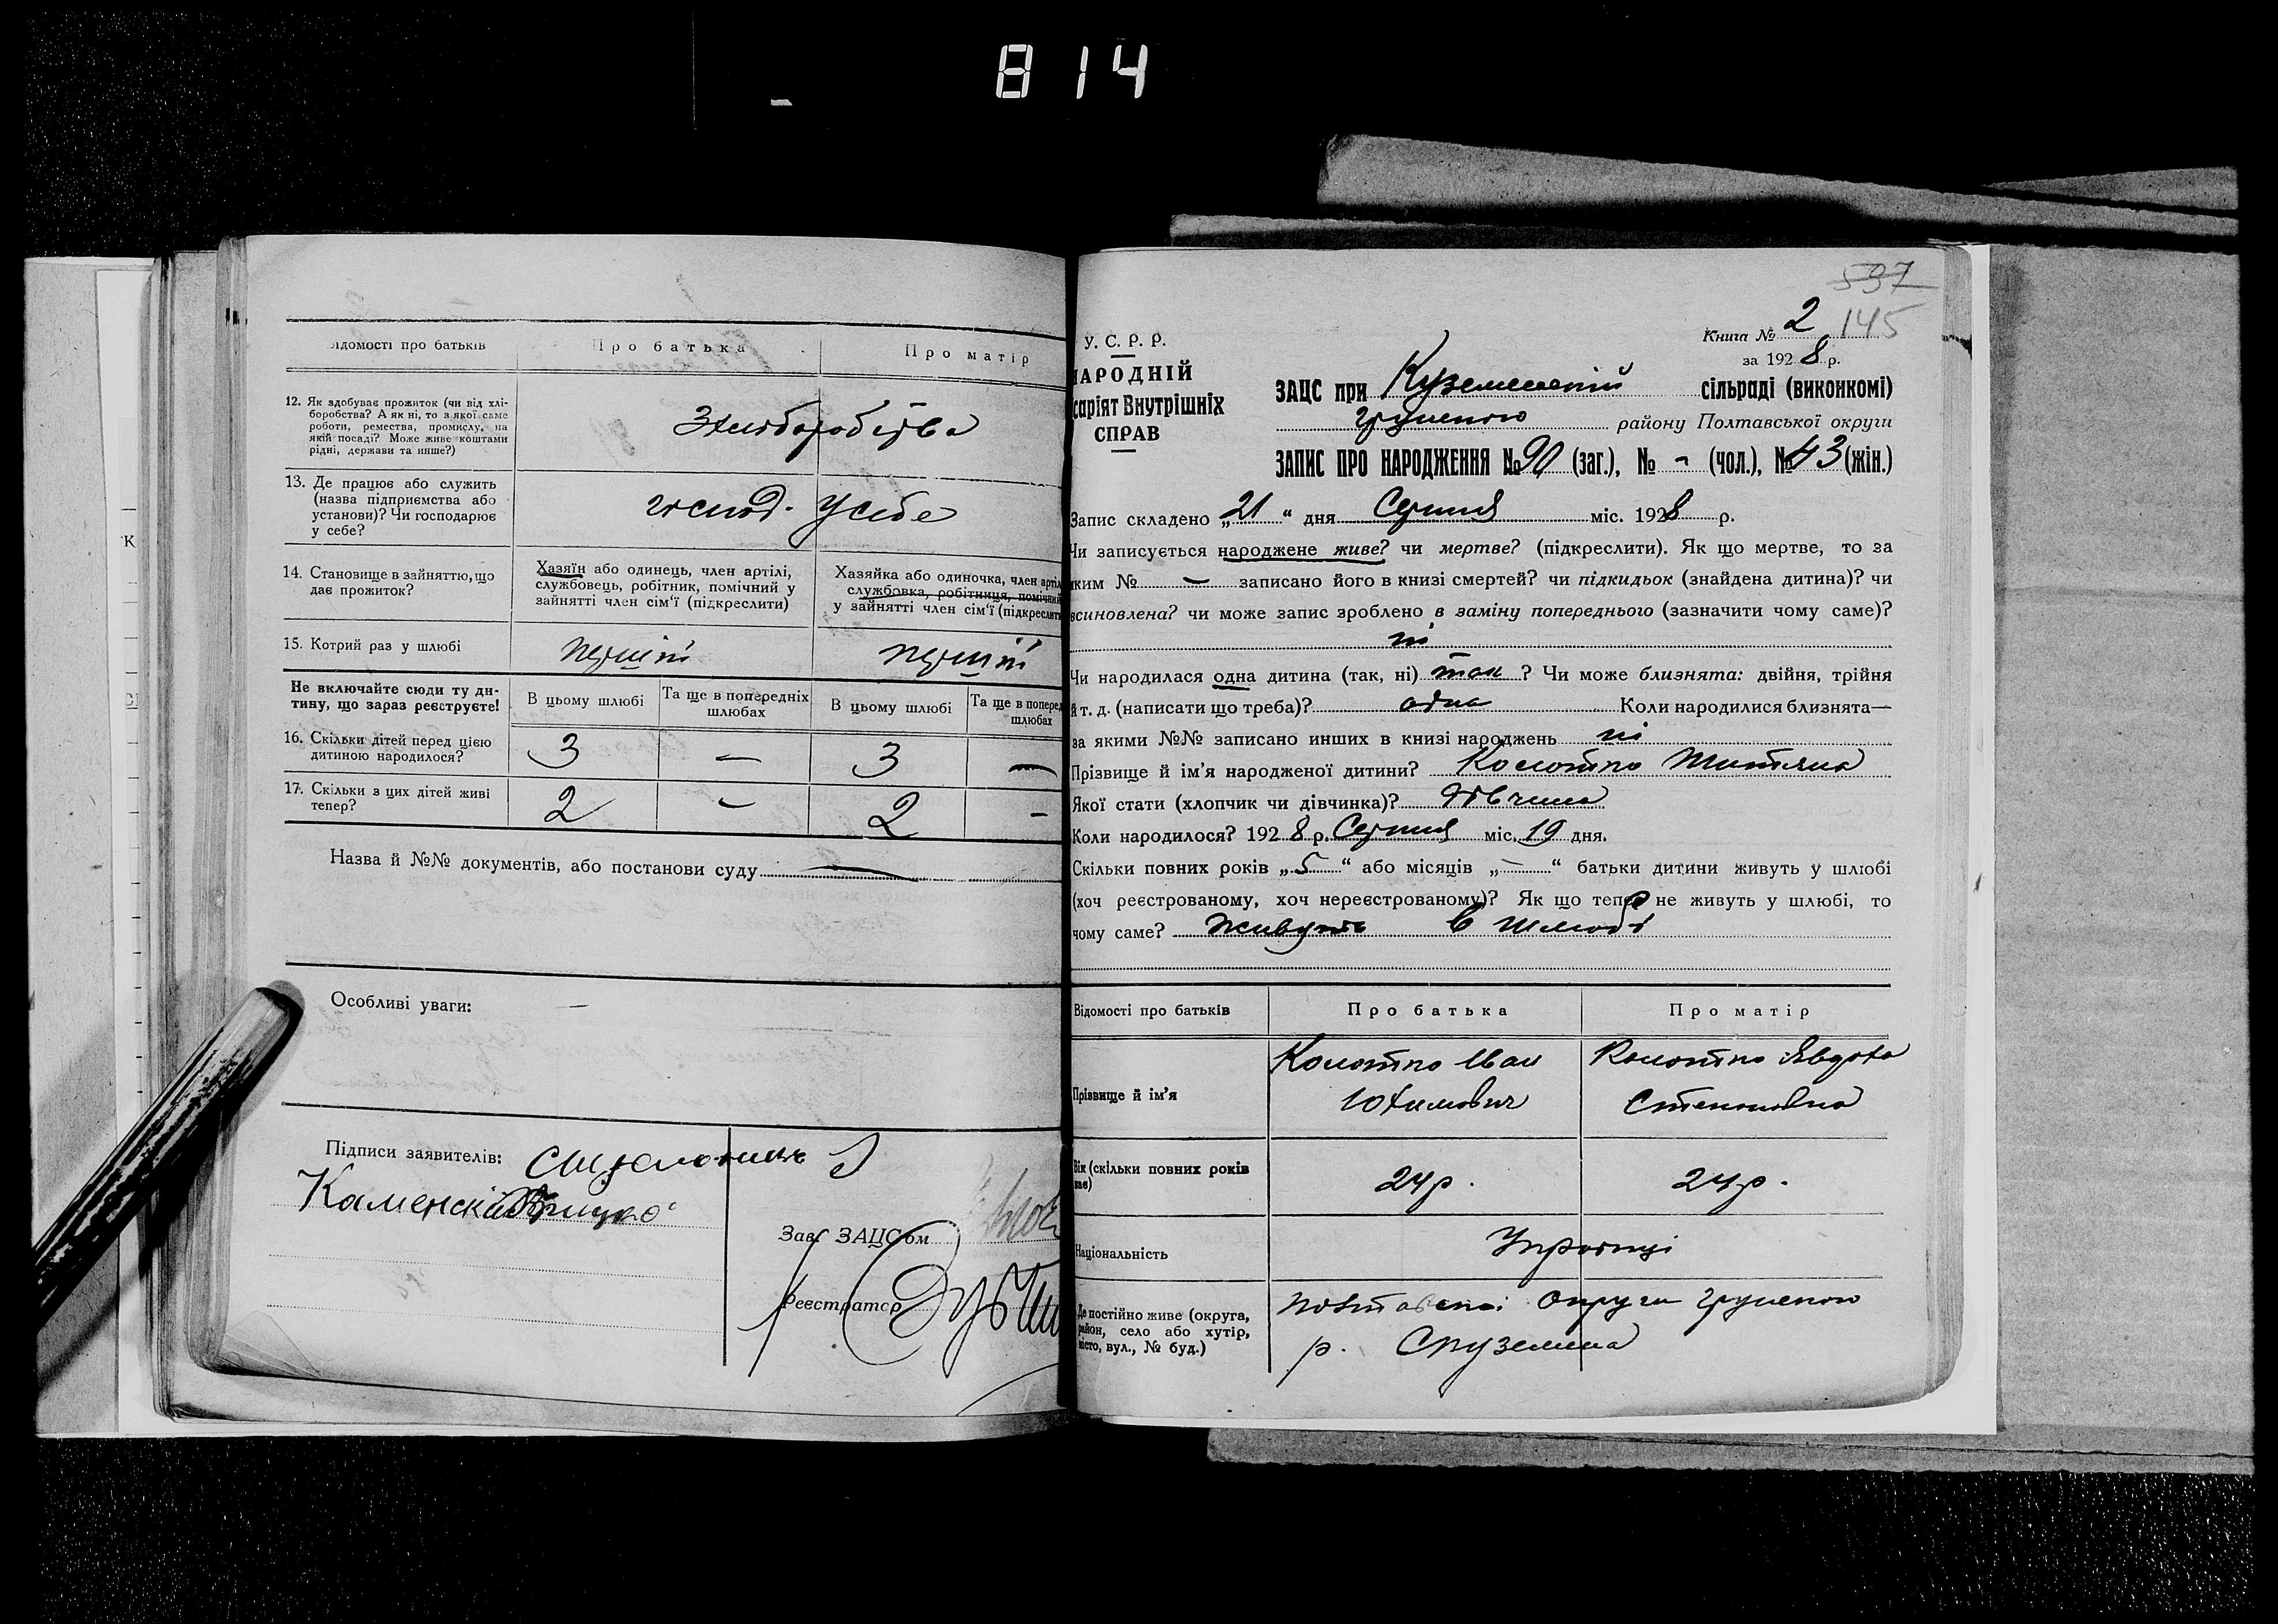 814
Відомості про батьків
Про батька
Про матір
12. Як здобуває прожиток (чи від хлі-
боробства? А як ні, то з якої саме
роботи, ремества, промислу, на
якій посаді? Може живе коштами
рідні, держави та инше?)
З хлиборобства
13. Де працює або служить
(назва підприємства або
установи)? Чи господарює
у себе?
господ. у себе
14. Становище в зайняттю, що
дає прожиток?
Хазяїн або одинець, член артілі,
службовець, робітник, помічний у
зайнятті член сім'ї (підкреслити)
Хазяйка або одиночка, член артіл
службовка, робітниця, помічний
у зайнятті член сім'ї (підкреслити
15. Котрий раз у шлюбі
перший
перший
Не включайте сюди ту ди-
тину, що зараз реєструєте!
В цьому шлюбі
Та ще в попередніх
шлюбах
В цьому шлюбі
Та ще в поперед
шлюбах
16. Скільки дітей перед цією
дитиною народилося?
3 — 3 —
17. Скільки з цих дітей живі
тепер?
2 - 2 -
Назва й №№ документів, або постанови суду —
Особливі уваги: —
Підписи заявителів:
Каменскій
Зав. ЗАЦС'ом
Реєстратор
537
145
Книга № 2
за 1928 р.
У. С. Р. Р.
НАРОДНІЙ
саріят Внутрішніх
СПРАВ
ЗАЦС при сільраді (виконкомі)
району Полтавської округи
ЗАПИС ПРО НАРОДЖЕННЯ № 90 (заг.), № - (чол.), № 43 (жін.)
Запис складено „21“ дня Серпня міс. 1928 р.
Чи записується народжене живе? чи мертве? (підкреслити). Як що мертве, то за
яким № — записано його в книзі смертей? чи підкидьок (знайдена дитина)? чи
всиновлена? чи може запис зроблено в заміну попереднього (зазначити чому саме)?
ні
Чи народилася одна дитина (так, ні) так? Чи може близнята: двійня, трійня
й т. д. (написати що треба)? одна Коли народилися близнята—
за якими №№ записано инших в книзі народжень ні
Прізвище й ім'я народженої дитини?
Якої стати (хлопчик чи дівчинка)? дівчина
Коли народилося? 1928 р. Серпня міс. 19 дня.
Скільки повних років „5“ або місяців „—“ батьки дитини живуть у шлюбі
(хоч реєстрованому, хоч нереєстрованому)? Як що тепер не живуть у шлюбі, то
чому саме? живуть в шлюбі
Відомості про батьків
Про батька
Про матір
Прізвище й ім'я
Иван
Юхимович
Явдоха
Степановна
Вік (скільки повних років
має)
24 р.
24 р.
Національність
Українці
Де постійно живе (округа,
район, село або хутір,
місто, вул., № буд.)
Полтавської округи
р.